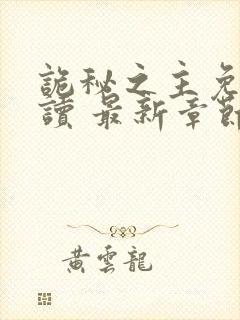 詭秘之主免
讀 最新章節
黃雲龍